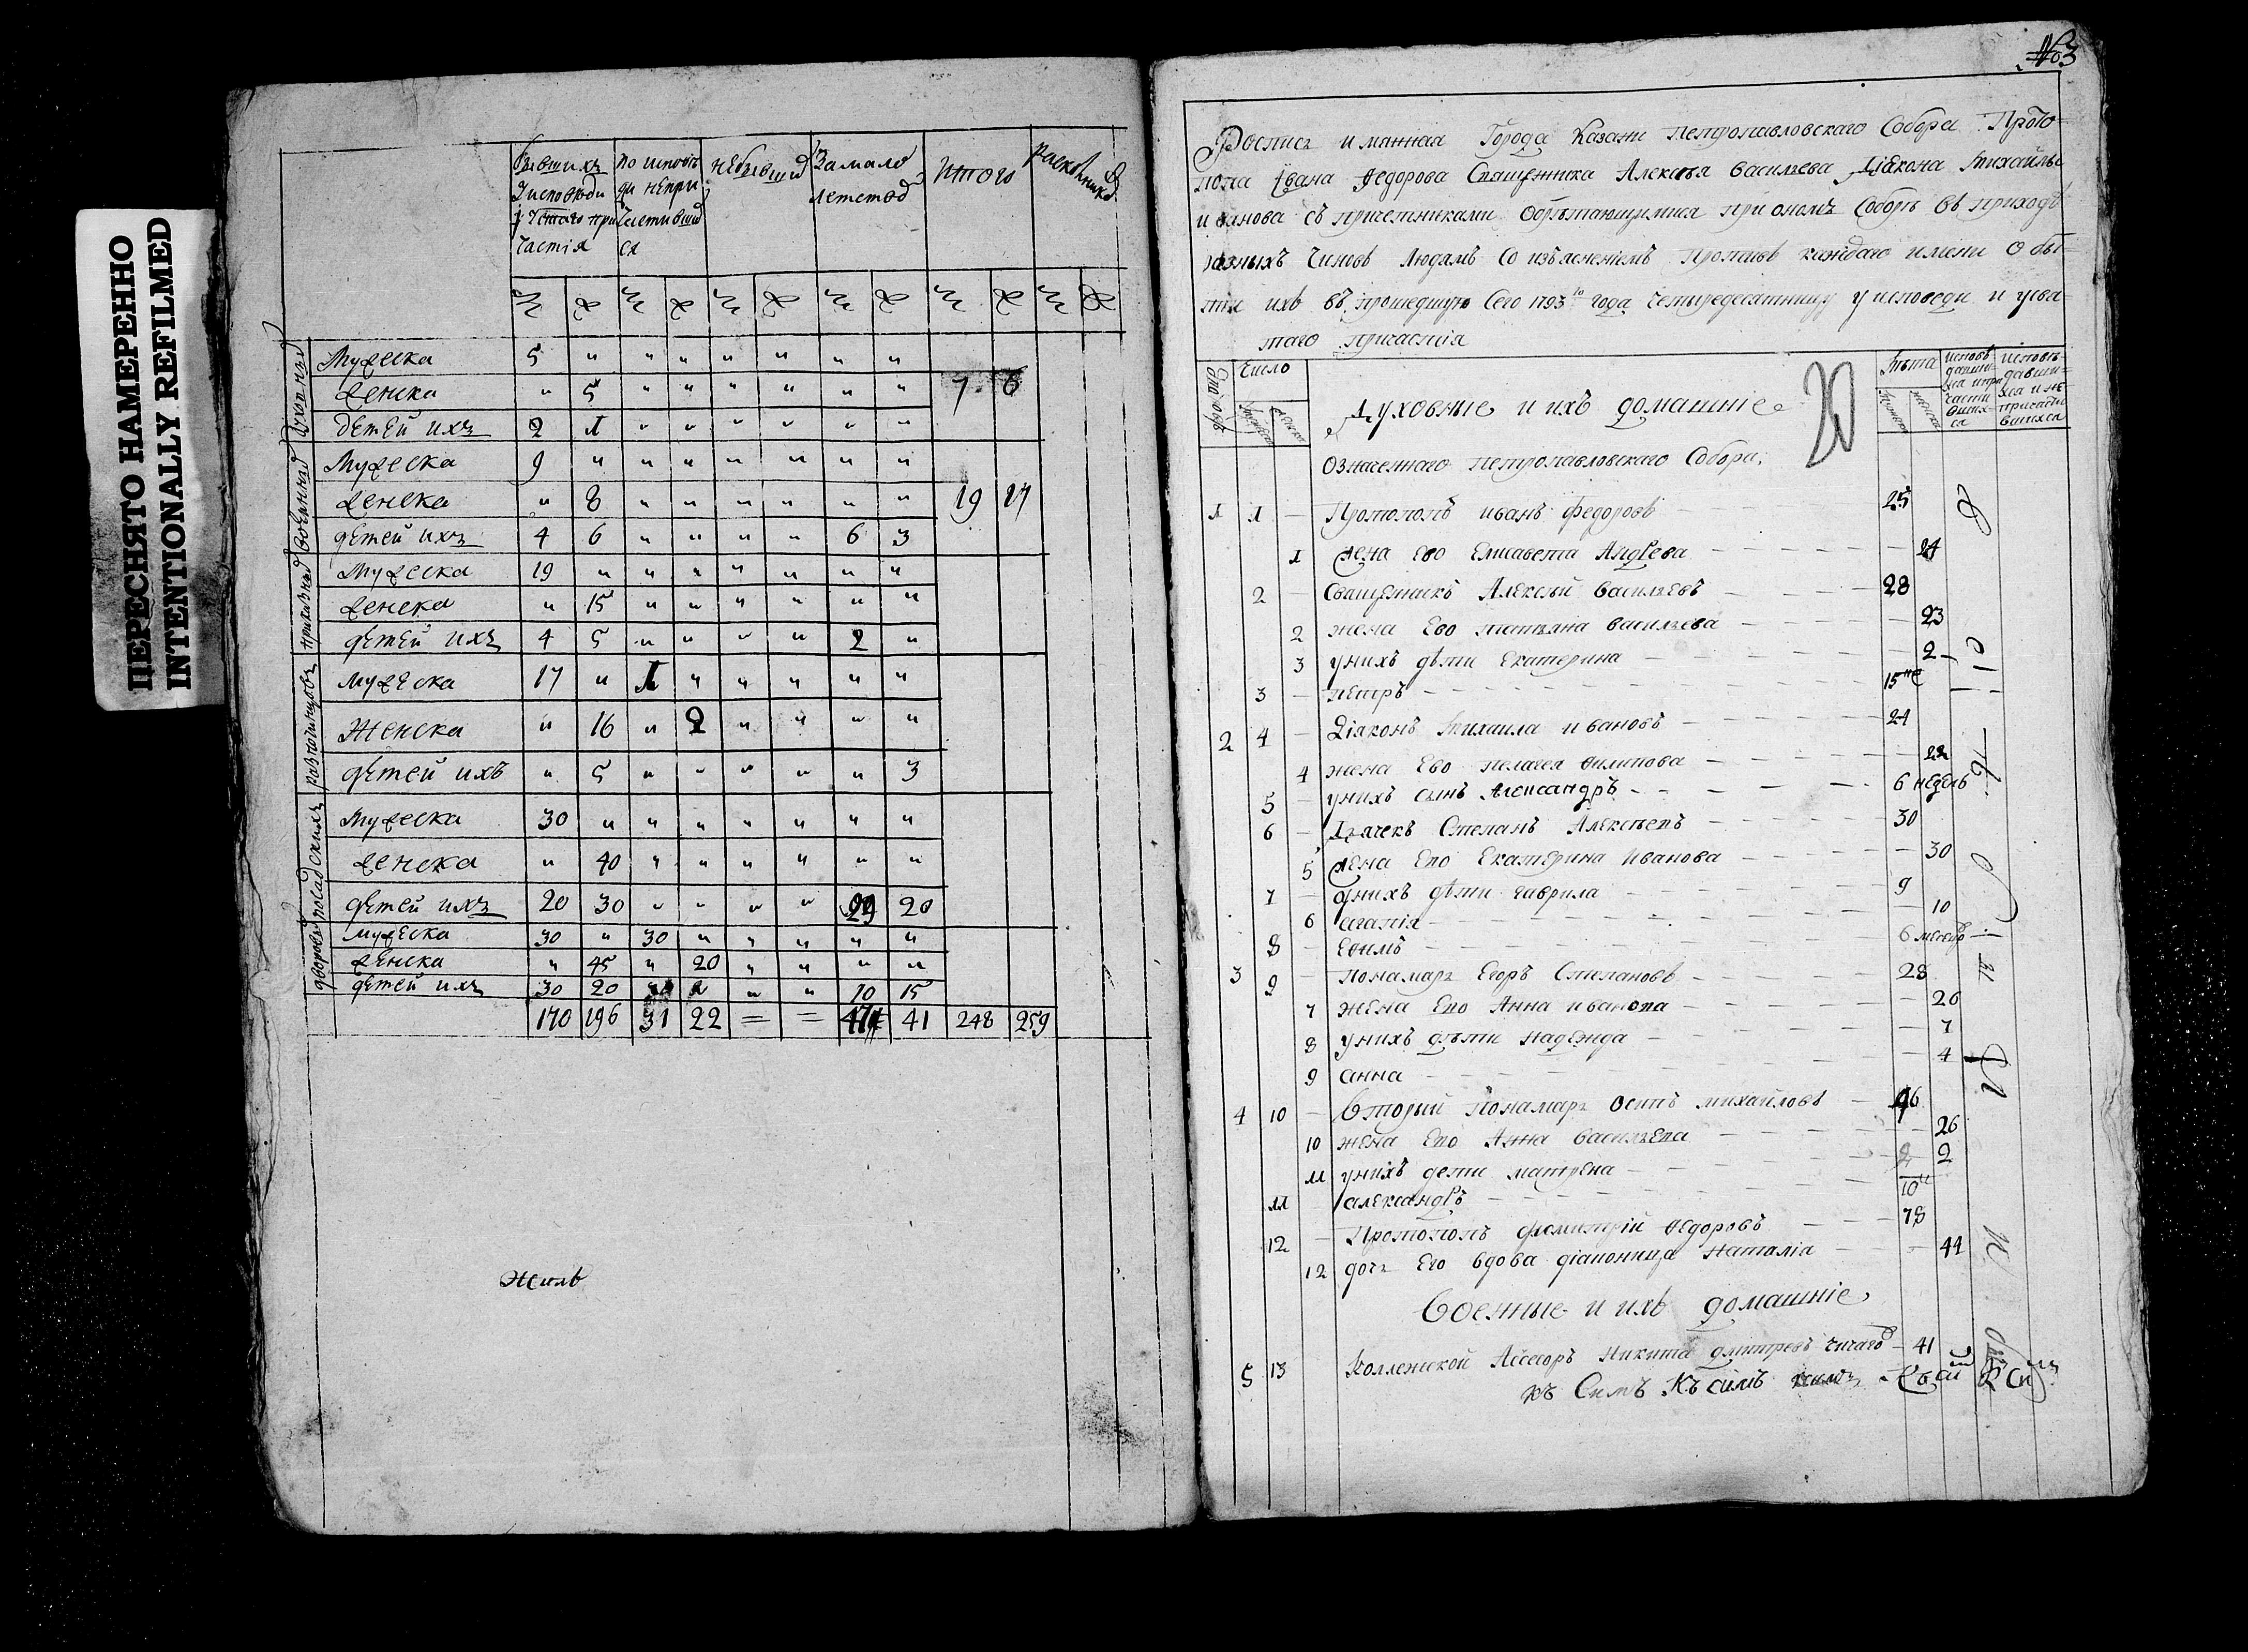 ПЕРЕСНЯТО НАМЕРЕННО
INTENTIONALLY REFILMED
бывшихъ у исповѣди и с͠таго причастія
по исповѣди непричастившихся
небывшихъ
За малолетствомъ
Итого
раскольниковъ
м ж м ж м ж м ж м ж м ж
духовныхъ
Мужеска 5 " " " " " " "
женска " 5 " " " " " " 7 6
детей ихъ 2 1 " " " " " "
военныхъ
Мужеска 9 " " " " " " "
женска " 8 " " " " " " 19 17
детей ихъ 4 6 " " " " 6 3
приказныхъ
Мужеска 19 " " " " " " "
женска " 15 " " " " " "
детей ихъ 4 5 " " " " 2 "
разночинцовъ
мужеска 17 " 1 " " " " "
Женска " 16 " 2 " " " "
детей ихъ " 5 " " " " " 3
посадскихъ
Мужеска 30 " " " " " " "
женска " 40 " " " " " "
детей ихъ 20 30 " " " " 29 20
дворовыхъ
мужеска 30 " 30 " " " " "
женска " 45 " 20 " " " "
детей ихъ 30 20 " " 10 15
170 196 31 22 = = 47 41 248 259
№3
Роспись имянная Города Казани петропавловскаго Собора Прото-
попа Ивана Федорова Священника Алексѣя Васильева Діякона Михайлы
иванова съ причетниками обрѣтающимися при ономъ Соборѣ въ приходѣ
разныхъ Чиновъ Людямъ Со изъясненіемъ противъ каждаго имени О бы-
тіи ихъ въ прошедшую Сего 1793го года Четыредесятницу у исповеди и у свя-
таго причастія
Число
Лѣта
исповѣдавшихся и причастившихся
исповѣдавшихся и не причастившихся
Духовные и ихъ домашніе
20
Означеннаго петропавловскаго Собора,
1 1 — Протопопъ иванъ федоровъ — 25
1 жена Ево Елисавета Андрева — 24
2 — Священникъ Алексѣй Васильевъ — 28
2 жена Ево татьяна васильева — 23
3 у нихъ дѣти Екатерина — 2
3 — петръ — 15 не
2 4 — Діяконъ Михаила ивановъ — 24
4 жена Ево пелагея филипова — 22
5 — у нихъ сынъ Александръ — 6 недель
6 — Дьячекъ Степанъ Алексѣевъ — 30
5 жена Ево Екатерина Иванова — 30
7 — у нихъ дѣти гаврила — 9
6 агапія — 10
8 — Ефимъ — 6 месецо
3 9 — Понамарь Егоръ Степановъ — 28
7 жена Ево Анна иванова — 26
8 у нихъ дѣти надежда — 7
9 анна — 4
4 10 — Вторый понамарь осипъ михайловъ — 46
10 жена Ево Анна васильева — 26
11 у нихъ дети матрена — 2
11 александръ — 10
12 — Протопопъ фемитрій федоровъ — 78
12 дочь Его вдова діаконница наталія — 44
Военные и ихъ домашніе
5 13 Коллежской Асесоръ Никита дмитревъ чичаговъ — 41
къ Симъ Къ симъ